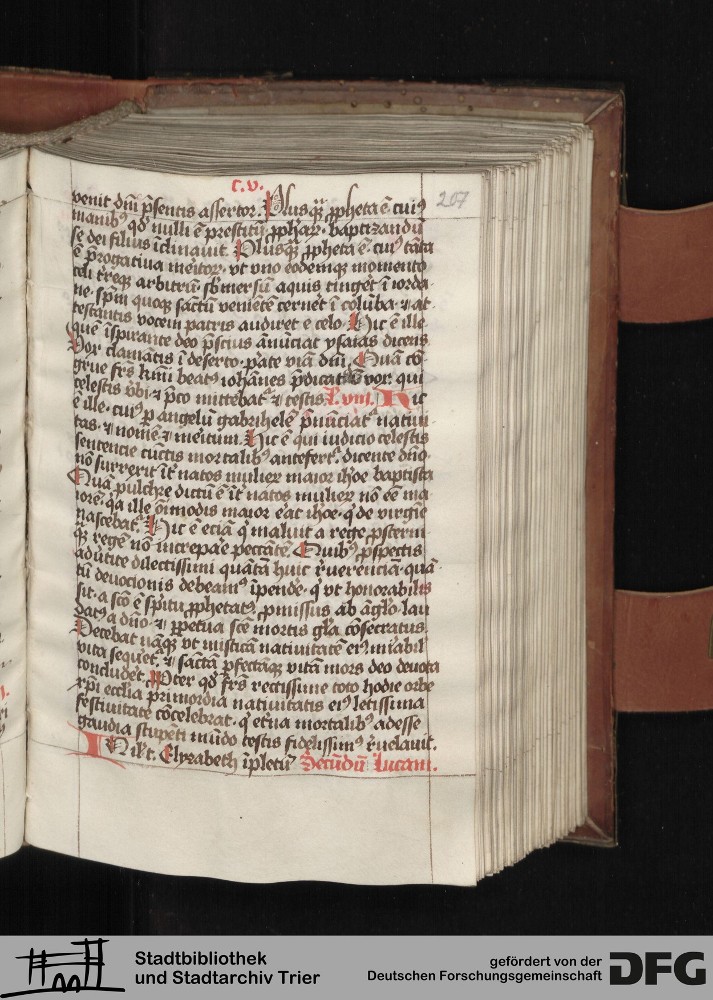 c. v.
207
venit dn̄i p̄sentis assertor. Plusq̄ꝫ ꝓpheta ē cui⁹
manib⁹ qd̓ nulli ē prestitū ꝓphar̄ꝫ baptizandū
se dei filius īclinauit. Plusq̄ꝫ ꝓpheta ē. cui⁹ tāta
ē p̄rogatiua meritoꝝ. vt vno eodemqꝫ momento
celi t̓reqꝫ arbitrū. sb̓mersū aquis tinget̓ ī iorda-
ne. sp̄m quoqꝫ sāctū venientē cernet̓ ī colūba. ⁊ at-
testantis vocem patris audiret e celo. Hic ē ille
quē īspirante deo p̄scius ānūciat ysaias dicens
Vox clamātis ī deserto. pͣate viā dn̄i. Quā cō-
grue frs̄ km̄i beat⁹ iohānes p̄dicat᷑ vox. qui
celestis v̓bi ⁊ p̄co mittebat᷑ ⁊ testis. L. viii. Hic
ē ille. cui⁹ ꝑ angelū gabrihelē p̄nūciat᷑ natiui-
tas. ⁊ nomē ⁊ meritum. Hic ē qui iudicio celestis
sentencie cūctis mortalib⁹ antefert᷑. dicente dn̄o.
nō surrexit īt̓ natos mulieꝝ maior ioh̄e baptista
Quā pulchre dictū ē īt̓ natos mulieꝝ nō eē ma-
iorē. qa ille oīmodis maior eāt ioh̄e. q̓ de virgīe
nascebat᷑. Hic ē eciā q̓ maluit a rege ꝓsterni
q̄ꝫ regē nō increpare peccātē. Quib⁹ ꝓspectis
adūtite dilectissimi quātā huic r̓uerenciā. quā-
tū deuocionis debeam⁹ īpend̓e. q̓ vt honorabilis
sit. a sco̅ ē sp̄ritu ꝓphetat᷑. ꝓmissus ab āglō. lau-
dat᷑ a dn̄o. ⁊ ꝑpetua sc̄e mortis gl̄a cōsecratus.
Decebat nāqꝫ vt misticā natiuitatē ei⁹ mirabil̓
vita sequeret᷑. ⁊ sāctā ꝑfectāqꝫ vitā mors deo deuota
concludet̓. Pter qd̓ frs̄ rectissime toto hodie orbe
xp̄i ecclīa primordia natiuitatis ei⁹ letissima
festiuitate cōcelebrat. q̓ et̓na mortalib⁹ adesse
gaudia stupēti mūdo testis fidelissim⁹ r̓uelauit.
In ill̓ t. Elyzabeth īpletū Secūdū Lucam.
Stadtbibliothek
und Stadtarchiv Trier
gefördert von der
Deutschen Forschungsgemeinschaft
DFG